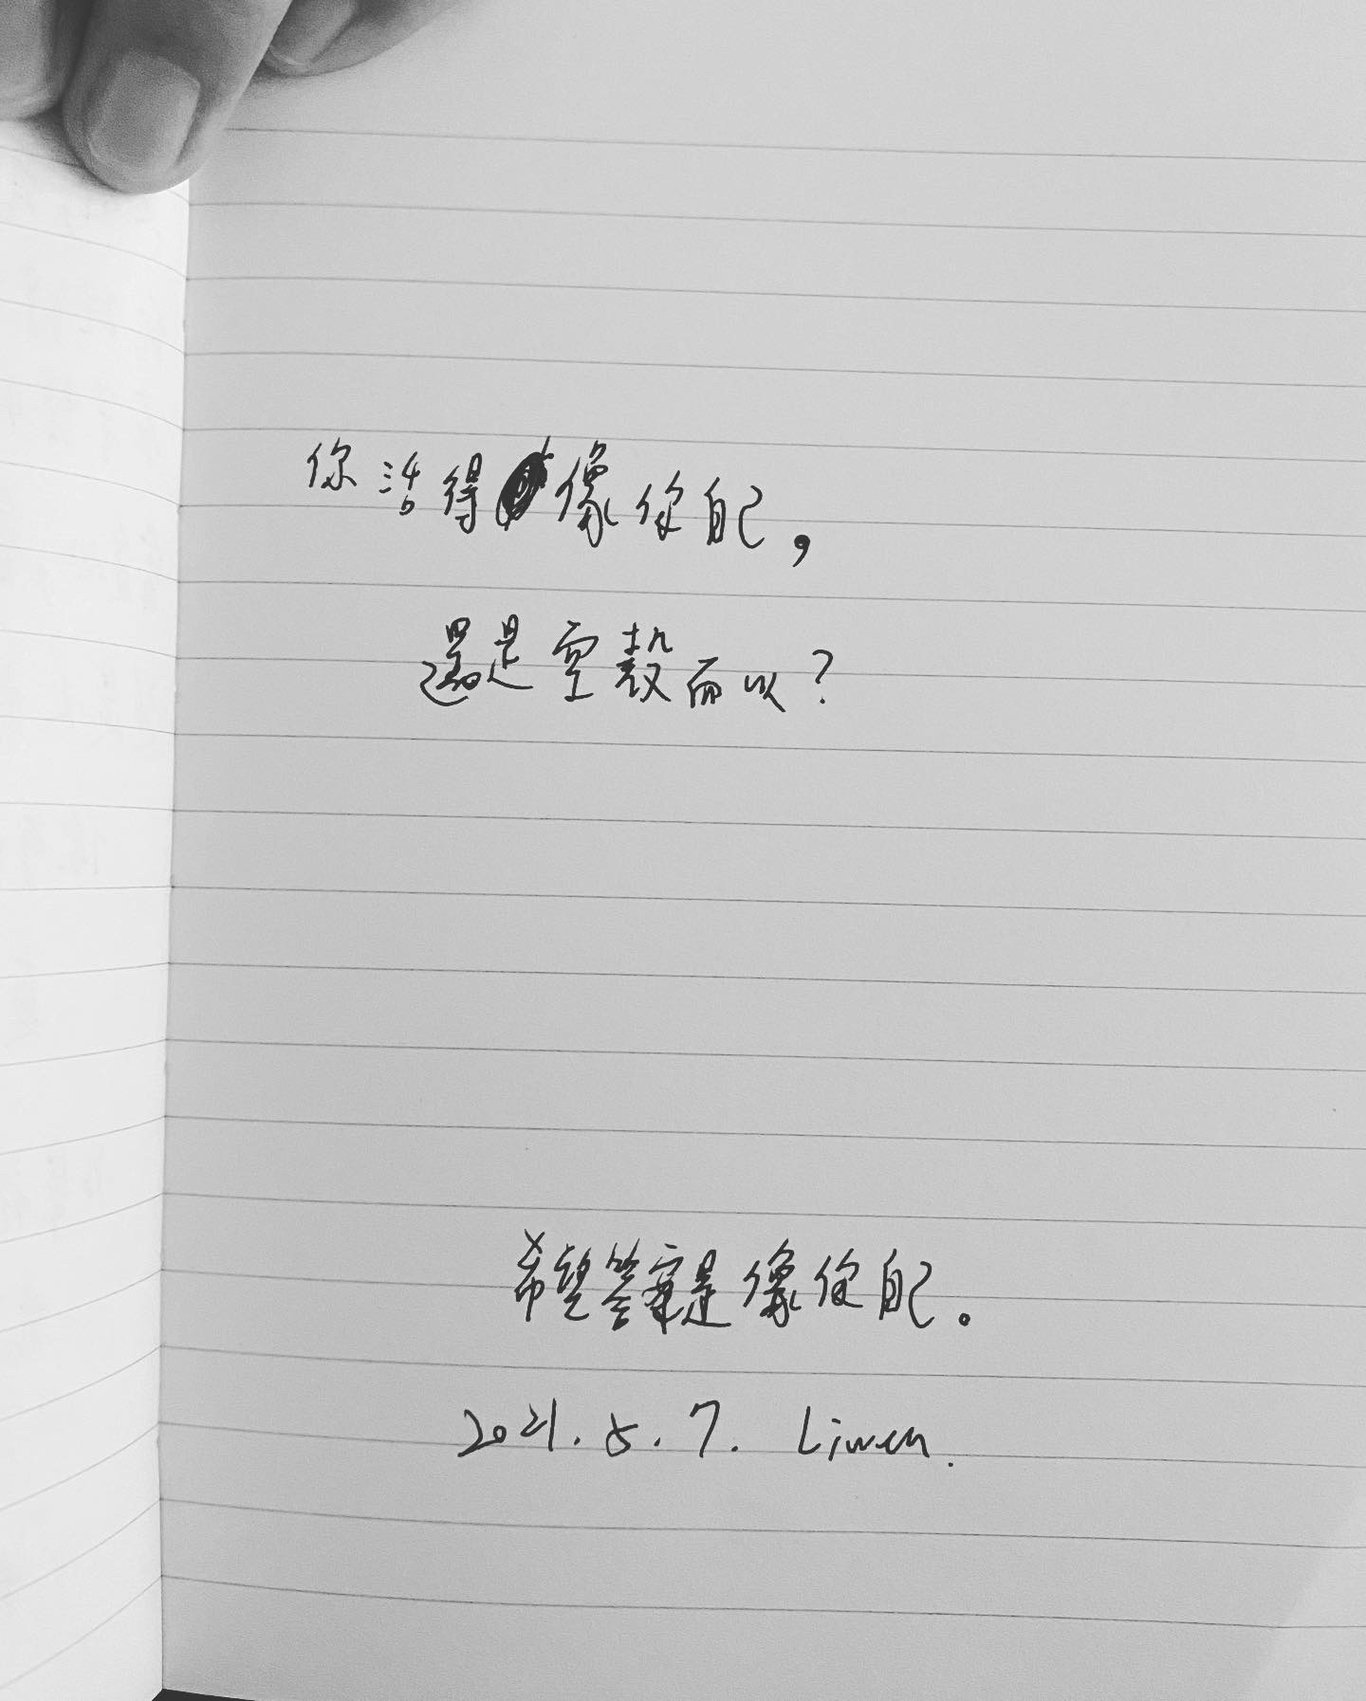 你活得像你自己，
還是空殼而以？
希望答案是像你自己。
2021.5.7. Liwen.